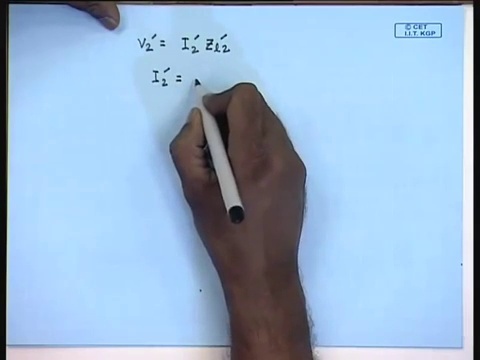 © CET
I.I.T. KGP
V₂′ = I₂′ Zl₂′
I₂′ =